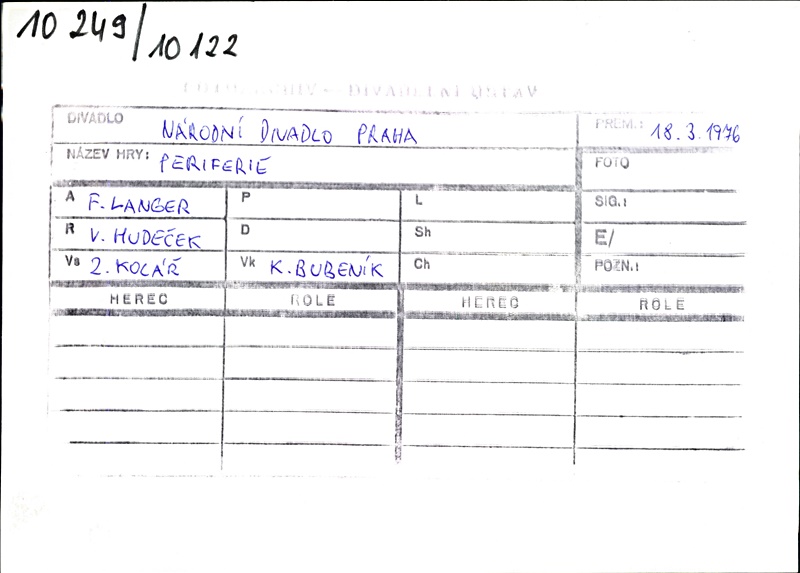 10 249/10 122
FOTOARCHIV – DIVADELNÍ ÚSTAV
DIVADLO NÁRODNÍ DIVADLO PRAHA PREM.: 18. 3. 1976
NÁZEV HRY: PERIFERIE FOTO
A F. LANGER P L SIG.:
R V. HUDEČEK D Sh E/
Vs Z. KOLÁŘ Vk K. BUBENÍK Ch POZN.:
HEREC ROLE HEREC ROLE